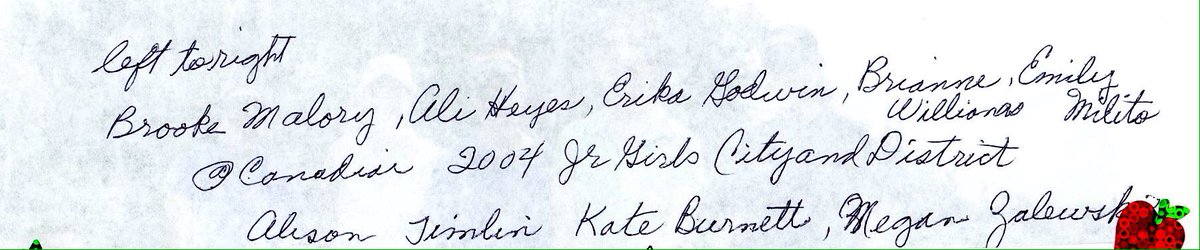 left to right
Brooke Malory, Ali Heyes, Erika Godwin, Brianne, Emily
Willians Milito
@Canadiar 2004 Jr Girls City and District
Alison Timlin Kate Burnett, Megan Zalewski